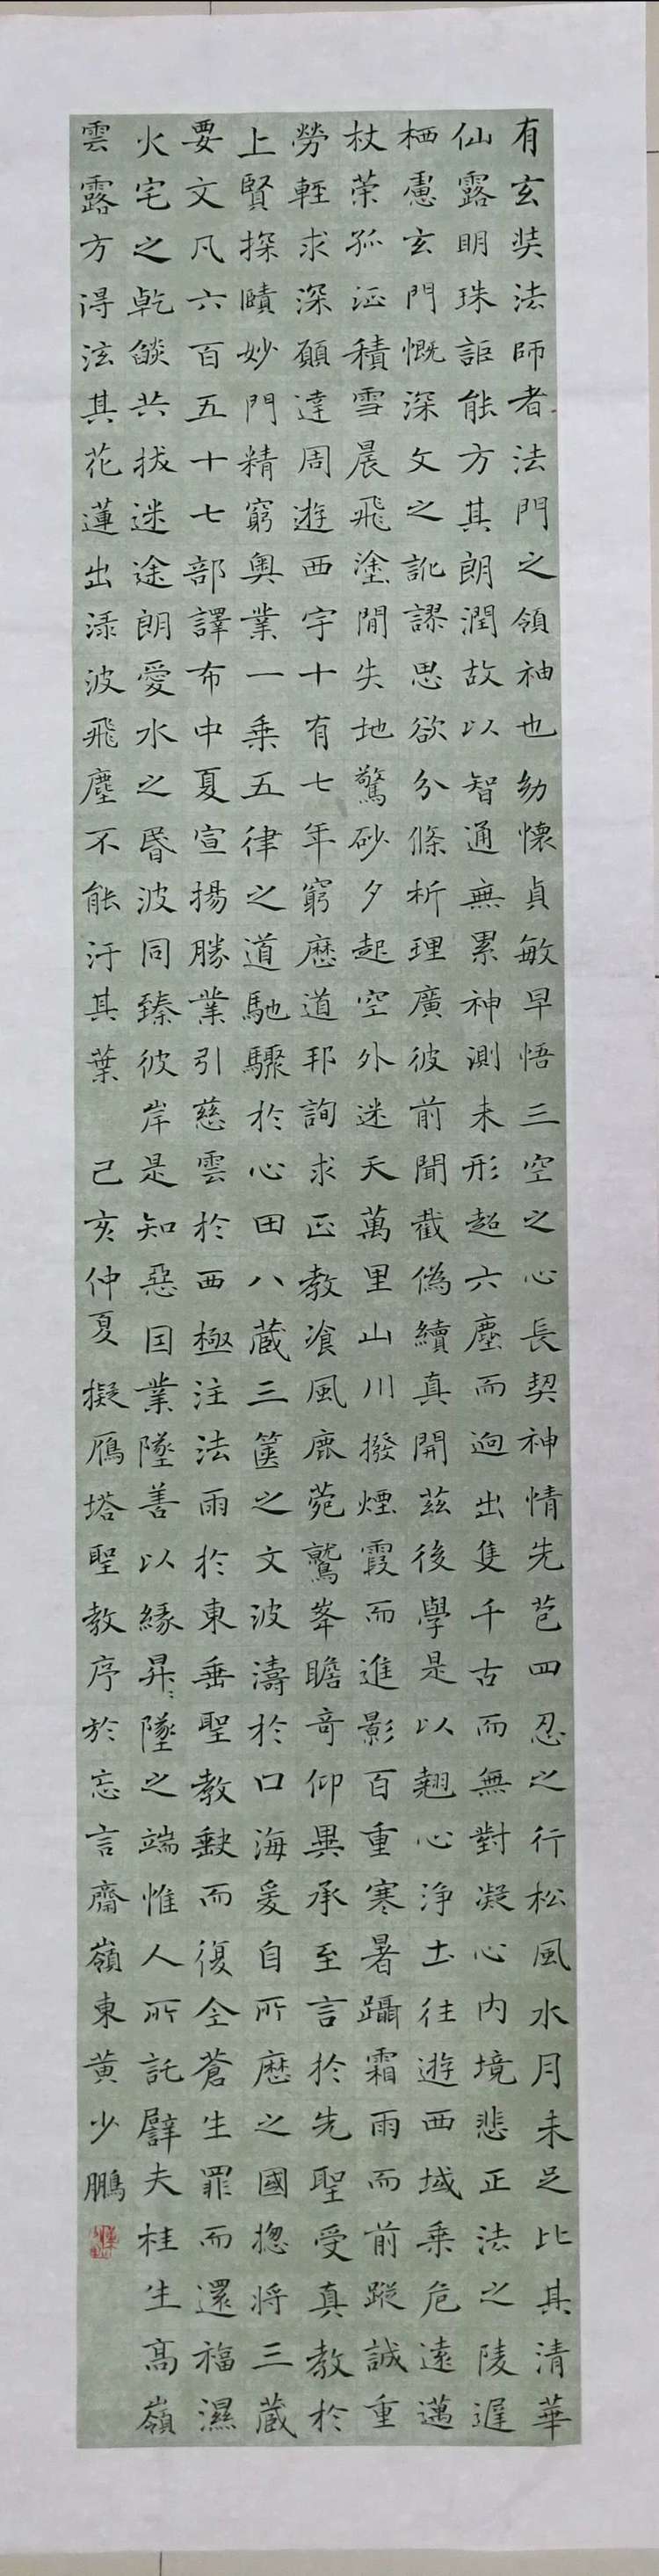 有玄奘法師者法門之領袖也幼懷貞敏早悟三空之心長契神情先苞四忍之行松風水月未足比其清華
仙露明珠詎能方其朗潤故以智通無累神測未形超六塵而迥出隻千古而無對凝心內境悲正法之陵遲
栖慮玄門慨深文之訛謬思欲分條析理廣彼前聞截偽續真開茲後學是以翹心淨土往遊西域乘危遠邁
杖策孤征積雪晨飛塗間失地驚砂夕起空外迷天萬里山川撥煙霞而進影百重寒暑躡霜雨而前蹤誠重
勞輕求深願達周遊西宇十有七年窮歷道邦詢求正教飡風鹿菀鷲峯瞻奇仰異承至言於先聖受真教於
上賢探賾妙門精窮奧業一乘五律之道馳驟於心田八藏三篋之文波濤於口海爰自所歷之國揔將三藏
要文凡六百五十七部譯布中夏宣揚勝業引慈雲於西極注法雨於東垂聖教缺而復全蒼生罪而還福濕
火宅之乾燄共拔迷途朗愛水之昏波同臻彼岸是知惡因業墜善以緣昇墜之端惟人所託譬夫桂生高嶺
雲露方得泫其花蓮出淥波飛塵不能汙其葉 己亥仲夏擬雁塔聖教序於忘言齋嶺東黄少鵬